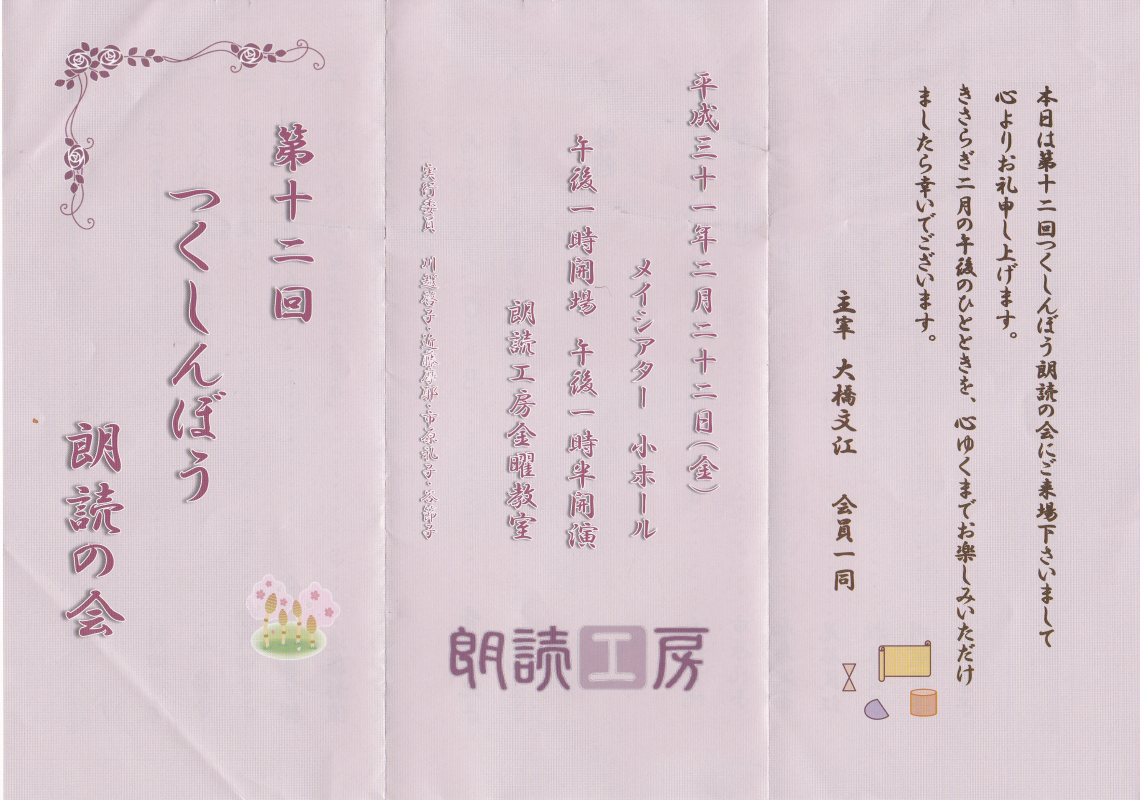 本日は第十二回つくしんぼう朗読の会にご来場下さいまして
心よりお礼申し上げます。
きさらぎ二月の午後のひとときを、心ゆくまでお楽しみいただけ
ましたら幸いでございます。
主宰 大橋文江 会員一同
平成三十一年二月二十二日(金)
メイシアター 小ホール
午後一時開場 午後一時半開演
朗読工房金曜教室
実行委員
朗読工房
第十二回
つくしんぼう
朗読の会